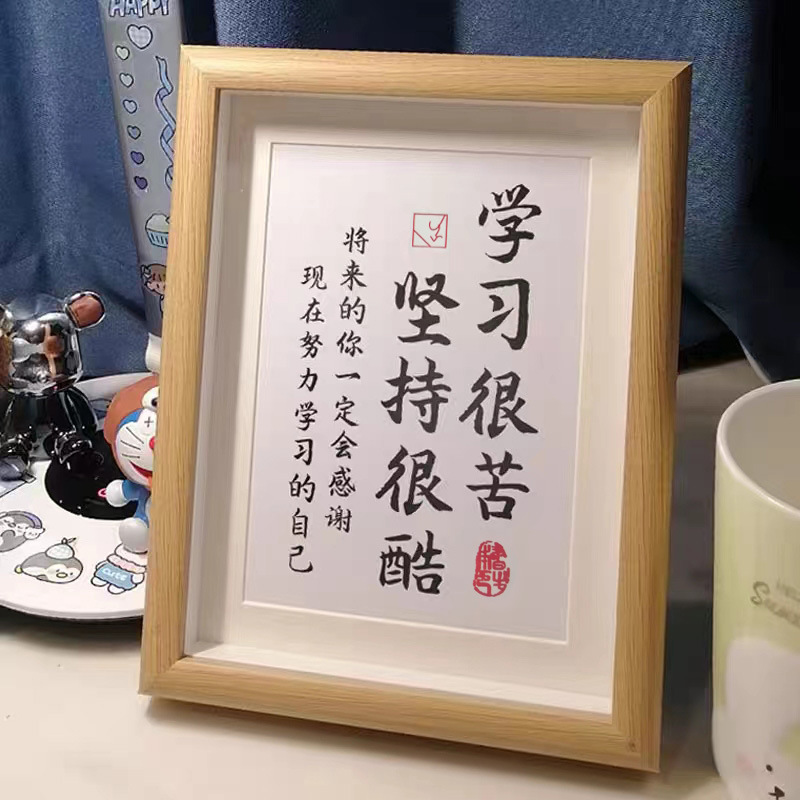 学习很苦
坚持很酷
将来的你一定会感谢
现在努力学习的自己
HAPPY
CUTE